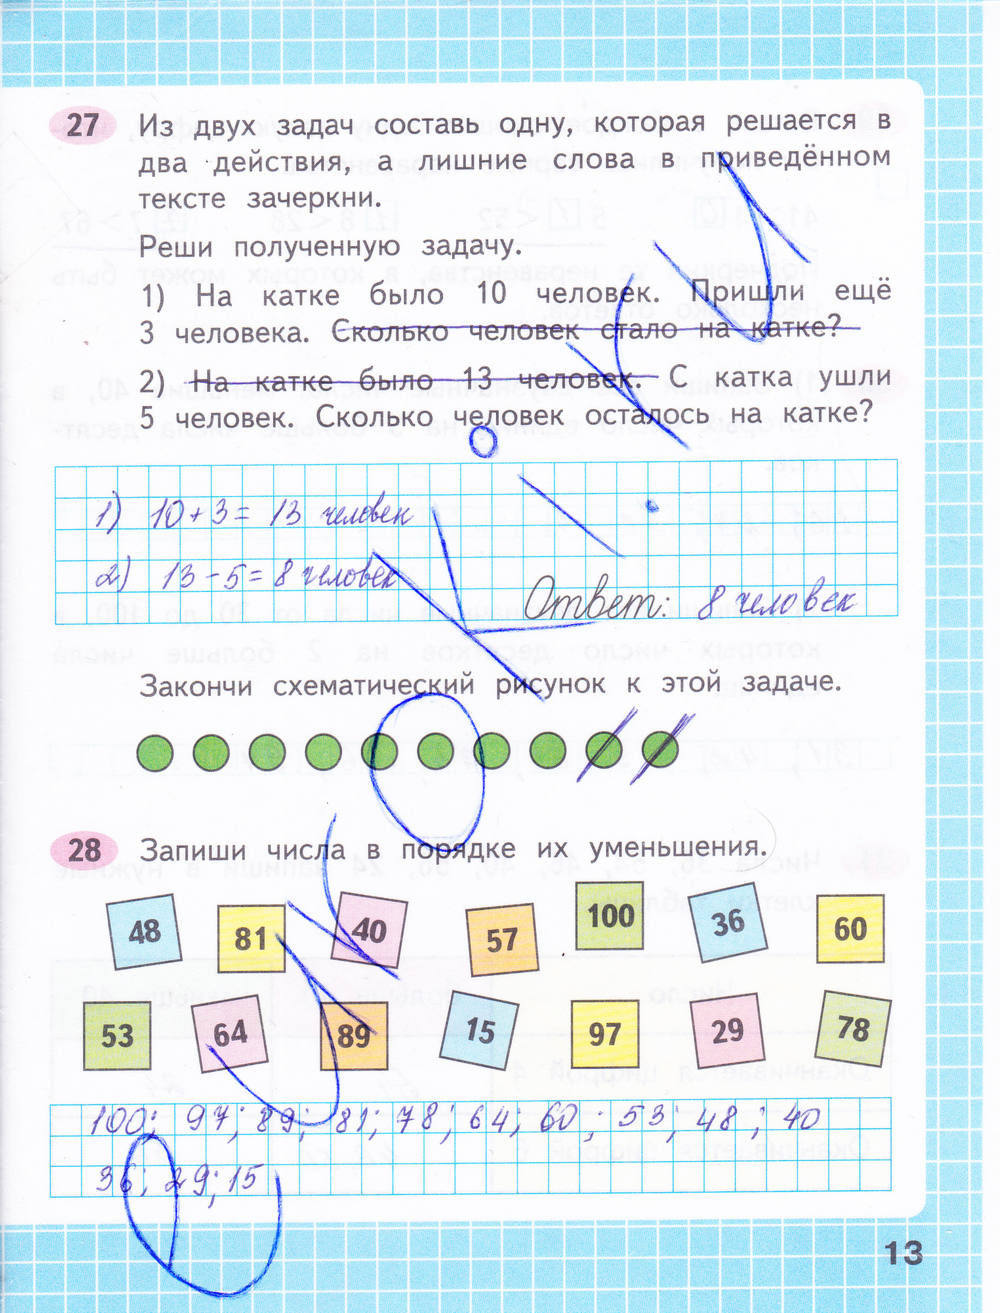 27 Из двух задач составь одну, которая решается в
два действия, а лишние слова в приведённом
тексте зачеркни.
Реши полученную задачу.
1) На катке было 10 человек. Пришли ещё
3 человека. Сколько человек стало на катке?
2) На катке было 13 человек. С катка ушли
5 человек. Сколько человек осталось на катке?
1) 10+3= 13 человек
2) 13-5=8 человек
Ответ: 8 человек
Закончи схематический рисунок к этой задаче.
28 Запиши числа в порядке их уменьшения.
48 81 40 57 100 36 60
53 64 89 15 97 29 78
100; 97; 89; 81; 78; 64; 60; 53; 48; 40
36; 29; 15
13